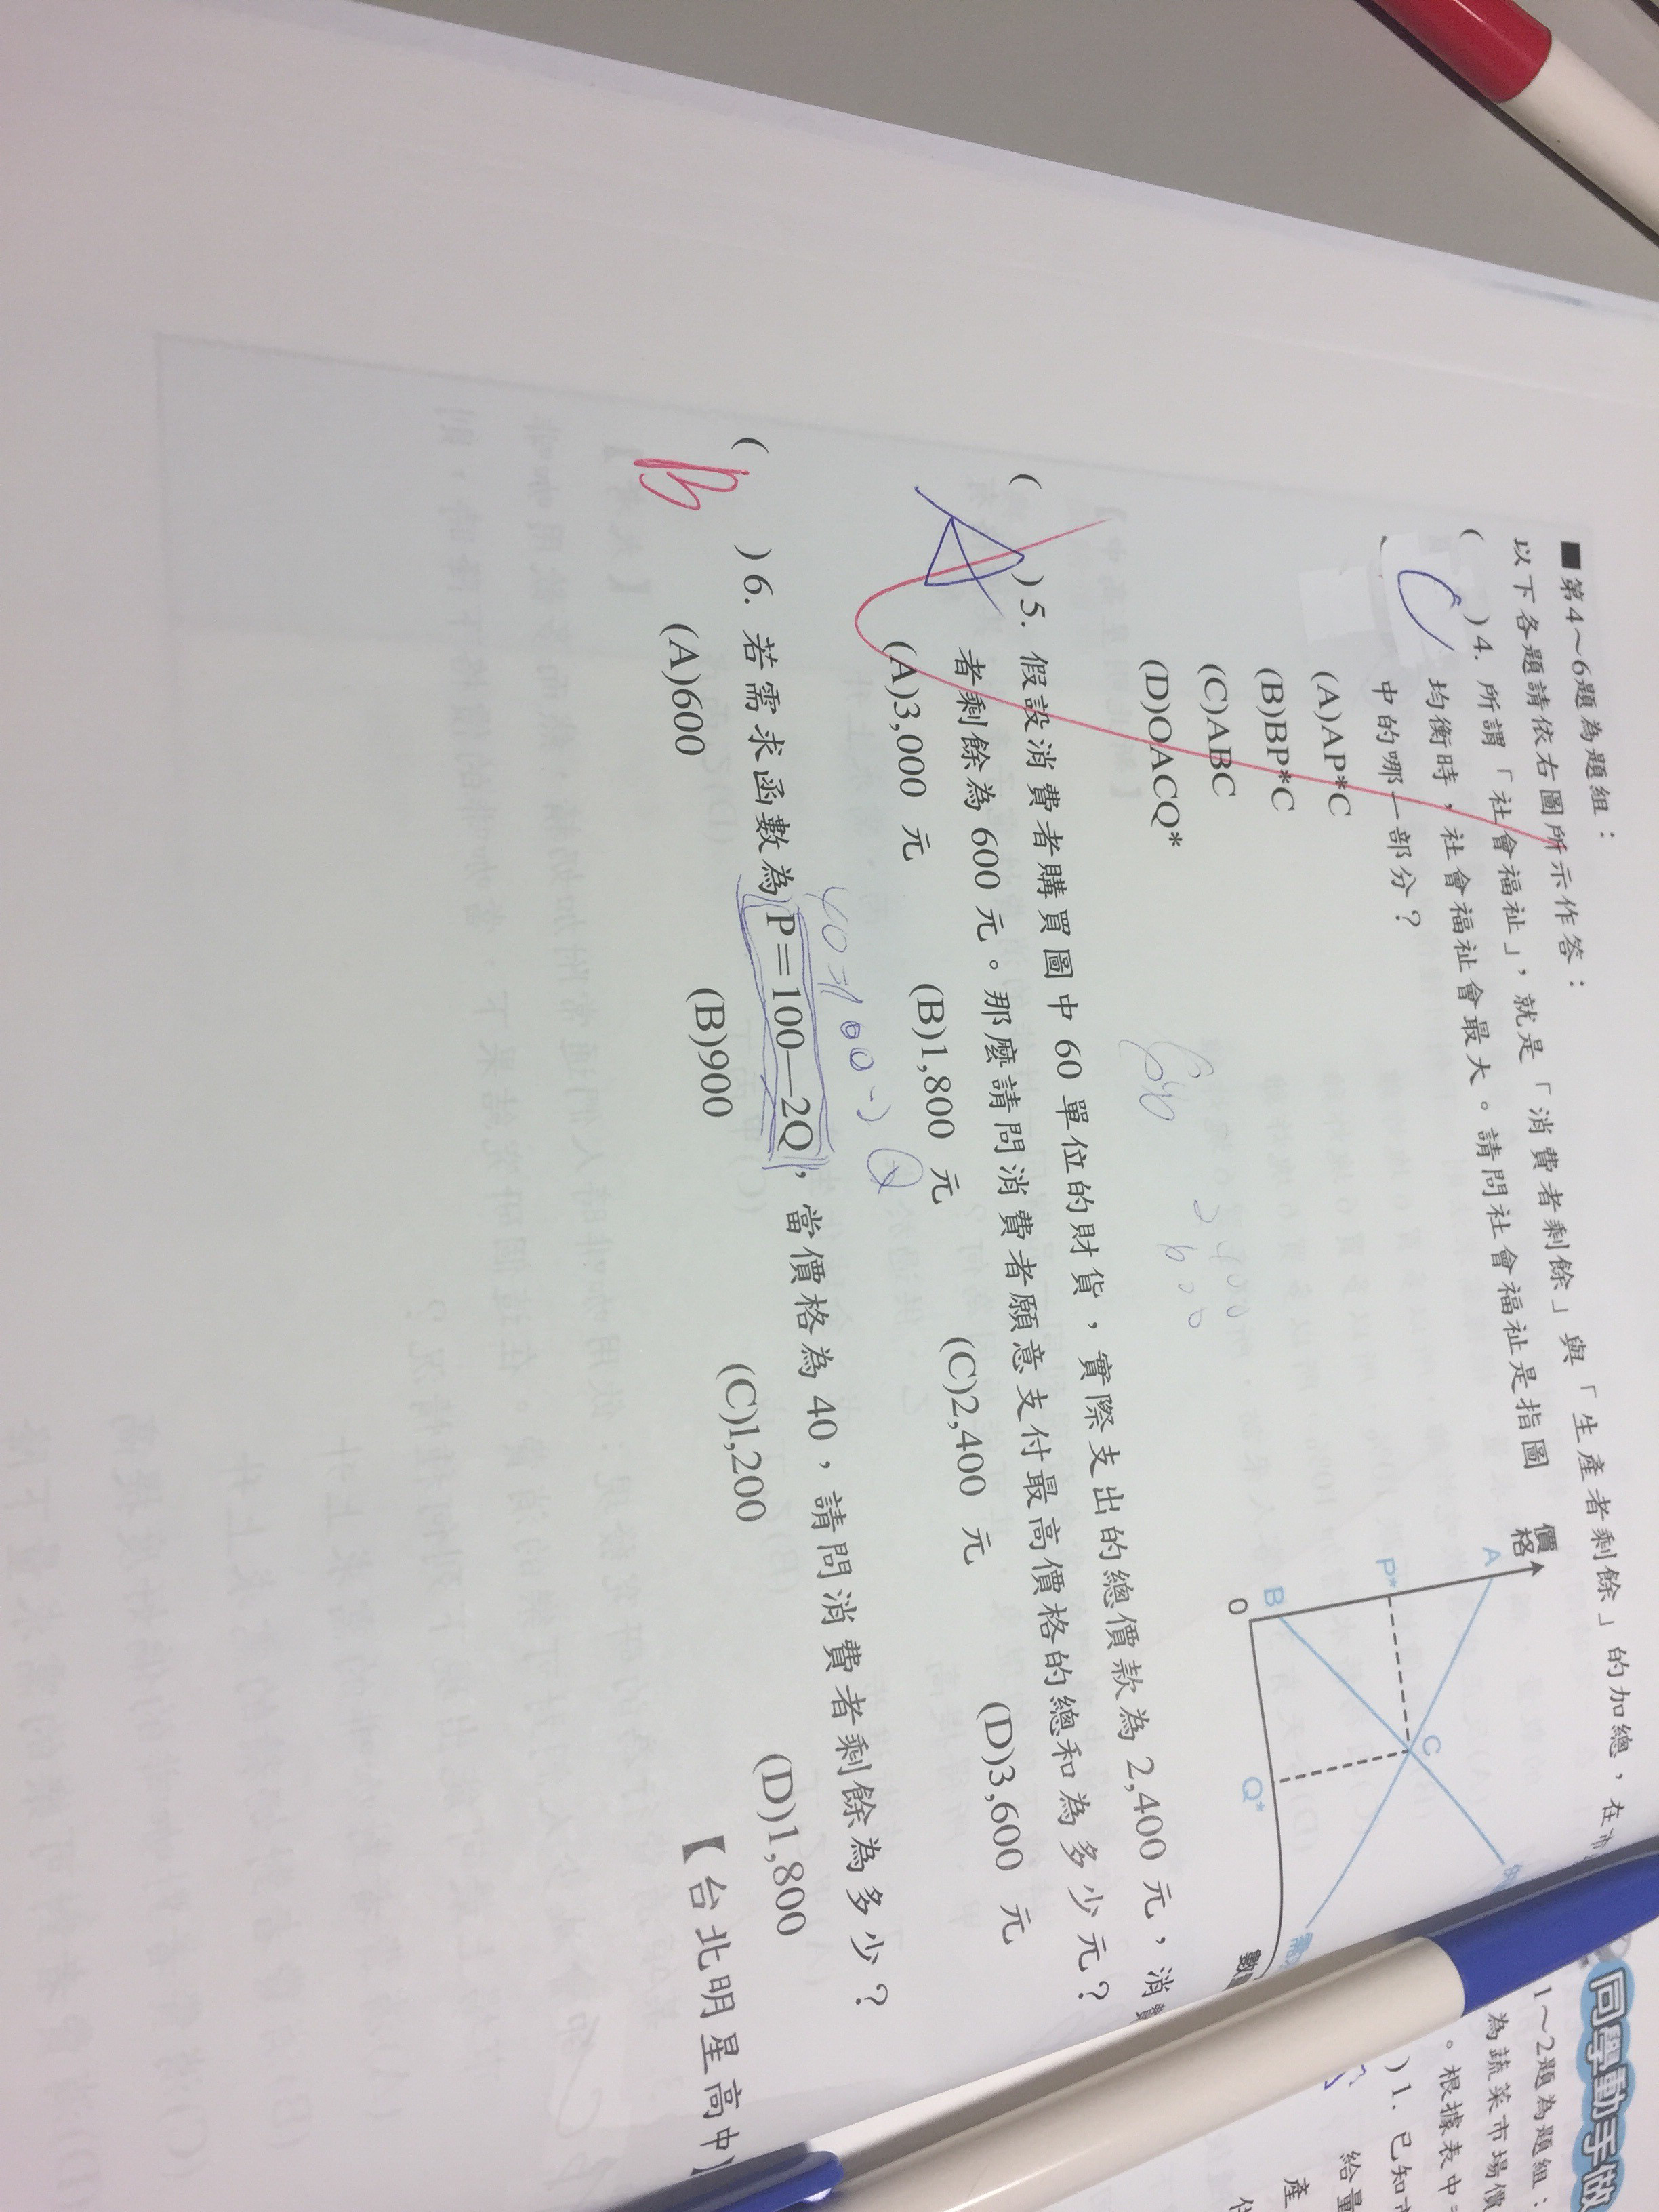 ■第4~6題為題組：
以下各題請依右圖所示作答：
( C )4. 所謂「社會福祉」，就是「消費者剩餘」與「生產者剩餘」的加總，在市
均衡時，社會福祉會最大。請問社會福祉是指圖
中的哪一部分？
(A)AP*C
(B)BP*C
(C)ABC
(D)OACQ*
價格
A
P*
B
O
C
Q*
數量
( A )5. 假設消費者購買圖中 60 單位的財貨，實際支出的總價款為 2,400 元，消費
者剩餘為 600 元。那麼請問消費者願意支付最高價格的總和為多少元？
(A)3,000 元 (B)1,800 元 (C)2,400 元 (D)3,600 元
( B )6. 若需求函數為 P=100—2Q，當價格為 40，請問消費者剩餘為多少？
(A)600 (B)900 (C)1,200 (D)1,800
【台北明星高中】
同學動手做
1~2題為題組：
為蔬菜市場價
。根據表中
)1. 已知市
給量
產